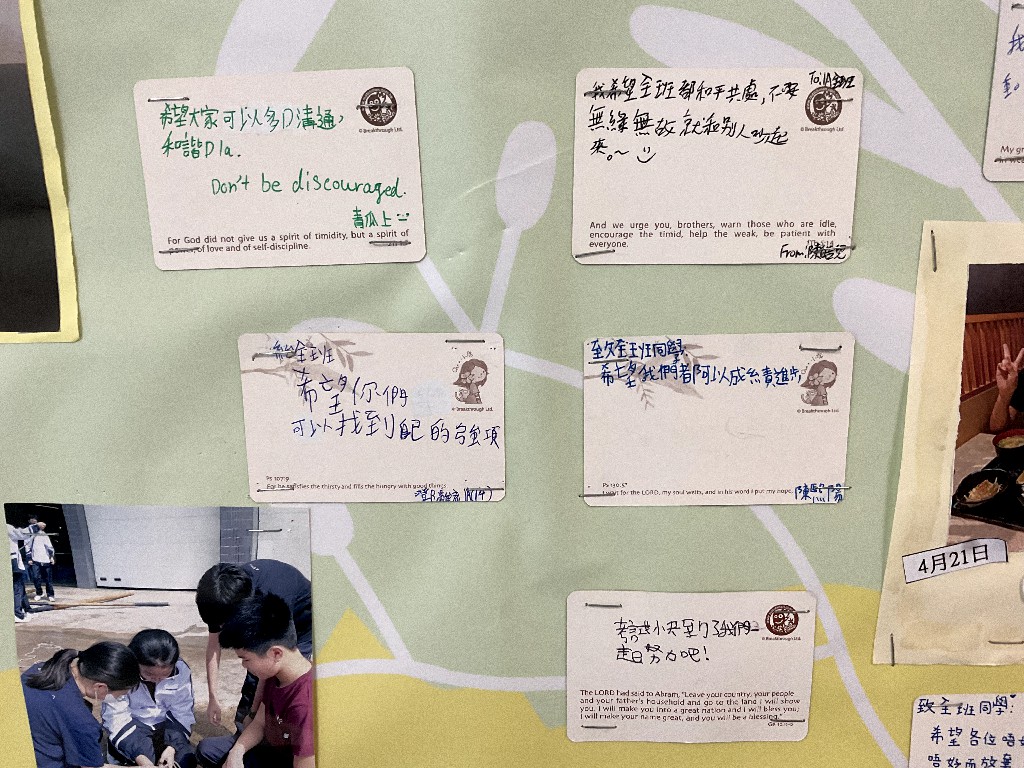 希望大家可以多D溝通，
和諧D la.
Don't be discouraged.
青瓜上
© Breakthrough Ltd.
For God did not give us a spirit of timidity, but a spirit of
of love and of self-discipline.
To: 1A全班
我希望全班都和平共處，不要
無緣無故就和別人吵起
來。~
© Breakthrough Ltd.
And we urge you, brothers, warn those who are idle,
encourage the timid, help the weak, be patient with
everyone.
From:
我
動。
My gr
給全班
希望你們
可以找到自己的強項
© Breakthrough Ltd.
Ps 107:9
For he satisfies the thirsty and fills the hungry with good things.
1A(14)
致全班同學:
希望我們都可以成績進步
© Breakthrough Ltd.
Ps 130:5
I wait for the LORD, my soul waits, and in his word I put my hope.
陳
4月21日
考試小天到了我們一
起努力吧！
© Breakthrough Ltd.
The LORD had said to Abram, "Leave your country, your people
and your father's household and go to the land I will show
you. I will make you into a great nation and I will bless you;
I will make your name great, and you will be a blessing."
致全班同學:
希望各位唔
唔好而放棄